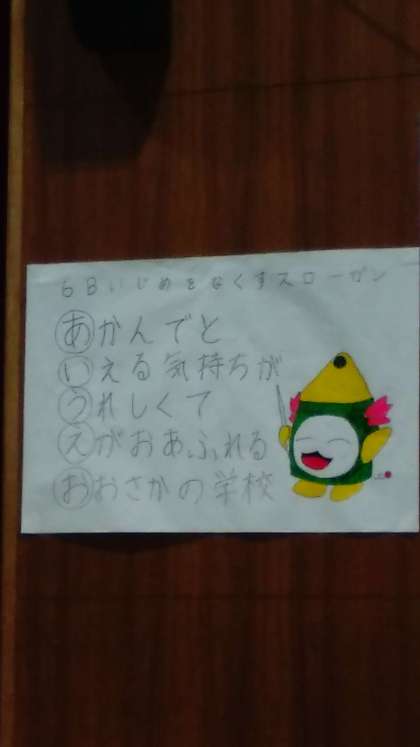 6Bいじめをなくすスローガン
あかんでと
いえる気持ちが
うれしくて
えがおあふれる
おおさかの学校